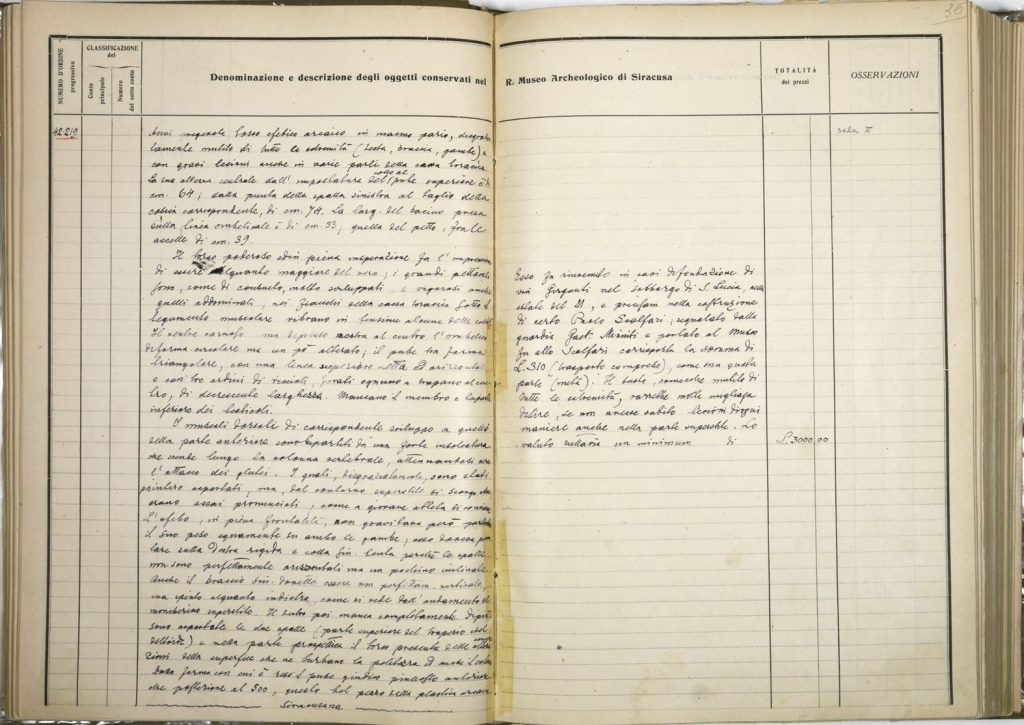 36
NUMERO D'ORDINE
progressivo
CLASSIFICAZIONE
del
Conto
principale
Numero
del sotto conto
Denominazione e descrizione degli oggetti conservati nel R. Museo Archeologico di Siracusa
TOTALITÀ
dei prezzi
OSSERVAZIONI
42.219
Assai torso efebico arcaico in marmo pario,
mutilo di tutte le estremità (testa, braccia, gambe) e
con gravi lesioni anche in varie parti della cassa toracica.
La sua altezza centrale dall'impostatura del pube superiore è di
cm. 64; dalla punta della spalla sinistra al taglio della
coscia corrispondente, di cm. 74. La larg. del bacino presa
sulla linea ombelicale è di cm. 33; quella del petto, fra le
ascelle di cm. 39.
Il torso poderoso ad una prima fa l'
di essere alquanto maggiore del vero; i grandi pettorali
sono, come di consueto, molto sviluppati, e vigorosi anche
quelli addominali, nei della cassa toracica sotto il
tegumento muscolare vibrano in tensione alcune delle
Il ventre ma depresso mostra al centro l'ombelico
di forma circolare ma un pò alterato; il pube ha forma
triangolare, con una linea superiore netta ed orizzontale
e con tre ordini di, forati ognuno a trapano al
tro, di decrescente larghezza. Mancano il membro e la parte
inferiore dei testicoli.
I muscoli dorsali di corrispondente sviluppo a quello
della parte anteriore sono bipartiti da una forte insolcatura
che scende lungo la colonna vertebrale, attenuandosi
l'attacco dei glutei. I quali, disgraziatamente, sono stati
asportati, ma, dal contorno superstite si scorge che
erano assai pronunciati, come a giovane atleta si
L'efebo, in piena frontalità, non gravitava però
il suo peso egualmente su ambo le gambe; esso doveva
sulla destra rigida e colla sin. perchè le spalle
non sono perfettamente orizzontali ma un pochino inclinate
Anche il braccio sin. dovette essere non perfettam. verticale,
ma spinto alquanto indietro, come si vede dall'andamento del
superstite. Il destro poi manca completamente.
sono asportate le due spalle (parte superiore del
deltoide) e nella parte il torso presenta delle
della superficie che ne turbano la politezza
Dalla forma con cui è reso il pube giudico piuttosto anteriore
che posteriore al 500, questo bel pezzo della plastica arcaica
siracusana.
Esso fu rinvenuto in casi di fondazione di
via Girgenti nel sobborgo di S. Lucia, nella
estate del 21, e precisam. nella costruzione
di certo Paolo Scalfari, segnalato dalla
guardia Fact. Miniti e portato al Museo
fu allo Scalfari corrisposta la somma di
L. 310 (trasporto compreso), come sua quota
parte (metà). Il busto, comecchè mutilo di
tutte le estremità, varrebbe molte migliaia
di lire, se non avesse subito lesioni
maniere anche nella parte superstite. Lo
valuto tuttavia un minimum di
L. 3000.00
sala X